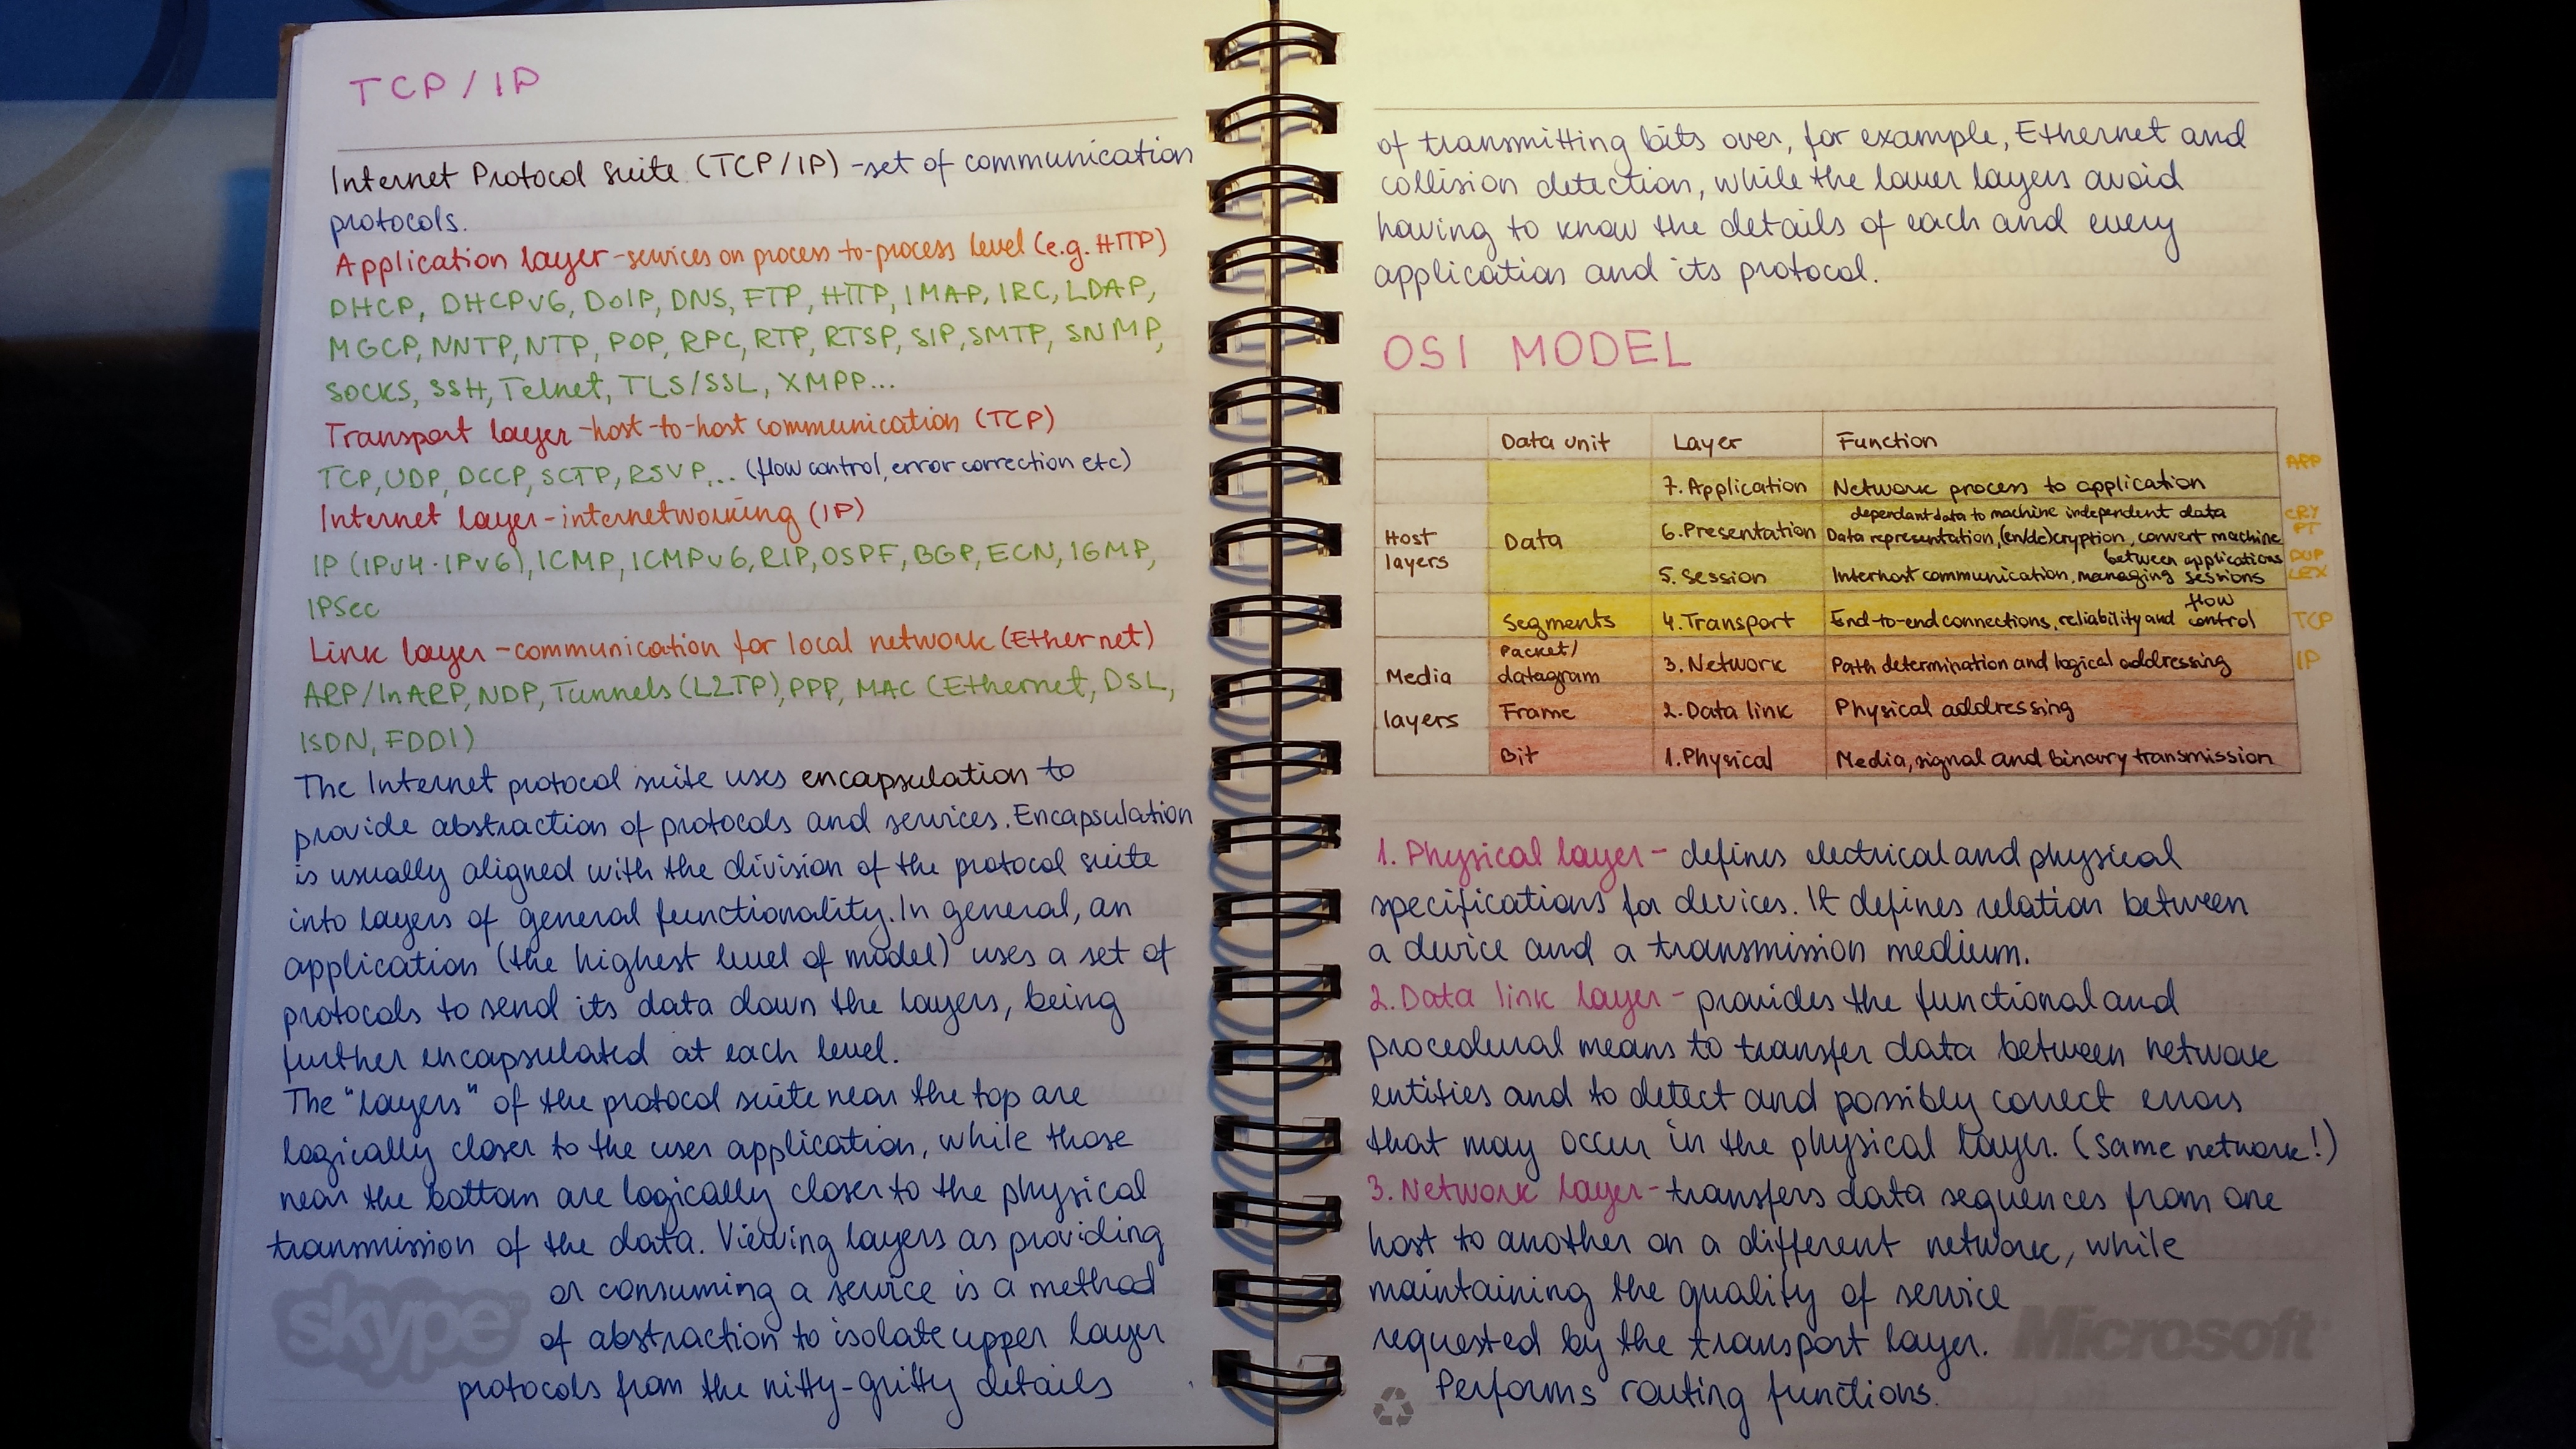 TCP/IP
Internet Protocol Suite (TCP/IP) - set of communication
protocols.
Application layer - services on process-to-process level (e.g. HTTP)
DHCP, DHCPv6, DoIP, DNS, FTP, HTTP, IMAP, IRC, LDAP,
MGCP, NNTP, NTP, POP, RPC, RTP, RTSP, SIP, SMTP, SNMP,
SOCKS, SSH, Telnet, TLS/SSL, XMPP...
Transport layer - host-to-host communication (TCP)
TCP, UDP, DCCP, SCTP, RSVP,... (flow control, error correction etc)
Internet layer - internetworking (IP)
IP (IPv4·IPv6), ICMP, ICMPv6, RIP, OSPF, BGP, ECN, IGMP,
IPSec
Link layer - communication for local network (Ethernet)
ARP/InARP, NDP, Tunnels (L2TP), PPP, MAC (Ethernet, DSL,
ISDN, FDDI)
The Internet protocol suite uses encapsulation to
provide abstraction of protocols and services. Encapsulation
is usually aligned with the division of the protocol suite
into layers of general functionality. In general, an
application (the highest level of model) uses a set of
protocols to send its data down the layers, being
further encapsulated at each level.
The "layers" of the protocol suite near the top are
logically closer to the user application, while those
near the bottom are logically closer to the physical
transmission of the data. Viewing layers as providing
or consuming a service is a method
of abstraction to isolate upper layer
protocols from the nitty-gritty details
skype
of transmitting bits over, for example, Ethernet and
collision detection, while the lower layers avoid
having to know the details of each and every
application and its protocol.
OSI MODEL
Data unit Layer Function
APP
7. Application Network process to application
Host layers Data
6. Presentation Data representation, (en/de)cryption, convert machine
dependant data to machine independent data
CRY
PT
5. Session Interhost communication, managing sessions
between applications
DUP
LEX
Segments 4. Transport End-to-end connections, reliability and flow control TCP
Media layers
Packet/datagram 3. Network Path determination and logical addressing IP
Frame 2. Data link Physical addressing
Bit 1. Physical Media, signal and binary transmission
1. Physical layer - defines electrical and physical
specifications for devices. It defines relation between
a device and a transmission medium.
2. Data link layer - provides the functional and
procedural means to transfer data between network
entities and to detect and possibly correct errors
that may occur in the physical layer. (same network!)
3. Network layer - transfers data sequences from one
host to another on a different network, while
maintaining the quality of service
requested by the transport layer.
Performs routing functions.
Microsoft